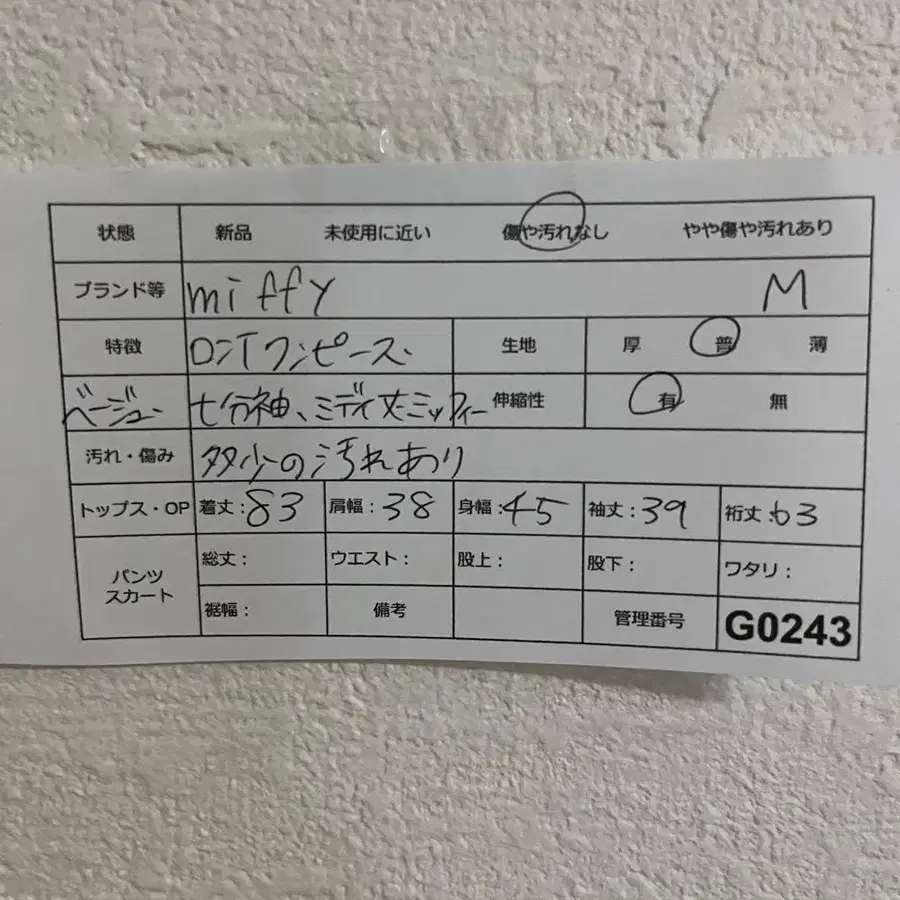 状態 新品 未使用に近い 傷や汚れなし やや傷や汚れあり
ブランド等 miffy M
特徴 ロンTワンピース. 生地 厚 普 薄
ベージュー 七分袖、ミディ丈ミッフィー 伸縮性 有 無
汚れ・傷み 多少の汚れあり
トップス・OP 着丈：83 肩幅：38 身幅：45 袖丈：39 裄丈：63
パンツ スカート 総丈： ウエスト： 股上： 股下： ワタリ：
裾幅： 備考 管理番号 G0243